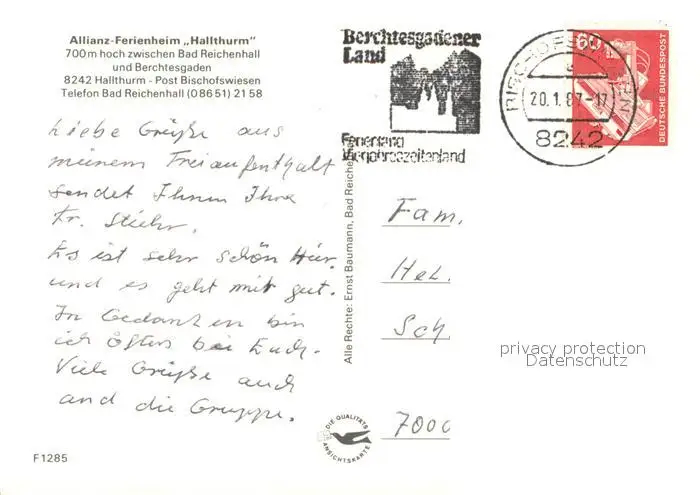 Allianz-Ferienheim „Hallthurm"
700 m hoch zwischen Bad Reichenhall
und Berchtesgaden
8242 Hallthurm - Post Bischofswiesen
Telefon Bad Reichenhall (0 86 51) 21 58
Berchtesgadener
Land
Ferienland
Vierjahreszeitenland
BISCHOFSWIESEN
20.1.87-17
8242
60
DEUTSCHE BUNDESPOST
Liebe Grüße aus
meinem Freiaufenthalt
sendet Ihnen Ihre
Fr. Stiehr.
Es ist sehr schön hier,
und es geht mir gut.
In Gedanken bin
ich öfters bei Euch.
Viele Grüße auch
and die Gruppe.
Alle Rechte: Ernst Baumann, Bad Reiche
Fam.
Hel.
Sch
7000
privacy protection
Datenschutz
DIE QUALITÄTS
ANSICHTSKARTE
F 1285